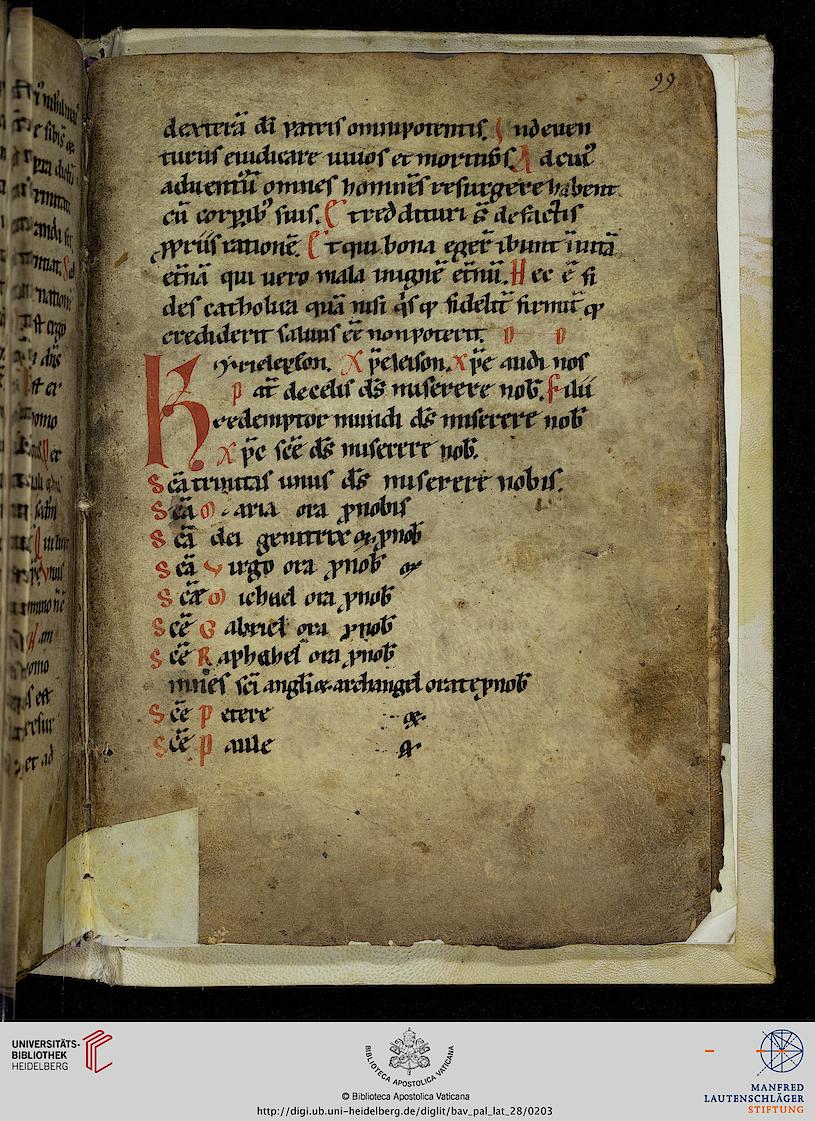 99
dexterā dī patris omnipotentis. Indeuen
turus eiudicare uiuos et mortuos. Adcuī
aduentū omnes homines resurgere habent
cū corꝑib' suis. Et reddituri s̄ de factis
ꝓpriis rationē. Et qui bona eger̄ ibunt ī uitā
et̄nā qui uero mala inignē et̄nū. Hec ē fi
des catholica quā nisi q̄sq; fidelit̄ firmit̄q;
crediderit saluus eē non poterit.
Kyrieleyson. Xp̄eleison. Xp̄e audi nos
Pat̄ de celis d̄s miserere nob̄. Filii
redemptor mundi d̄s miserere nob̄
Xp̄e sc̄e d̄s miserere nob̄.
Sc̄a trinitas unus d̄s miserere nobis.
Sc̄a Maria ora ꝓnobis
Sc̄a dei genitrix or̄ ꝓnob̄
Sc̄a Virgo ora ꝓnob̄ or̄
Sc̄e Michael ora ꝓnob̄
Sc̄e Gabriel ora ꝓnob̄
Sc̄e Raphahel ora ꝓnob̄
mnes sc̄i angli & archangel orate ꝓnob̄
Sc̄e Petere or̄
Sc̄e Paule or̄
UNIVERSITÄTS-
BIBLIOTHEK
HEIDELBERG
BIBLIOTECA APOSTOLICA VATICANA
© Biblioteca Apostolica Vaticana
http://digi.ub.uni-heidelberg.de/diglit/bav_pal_lat_28/0203
MANFRED
LAUTENSCHLÄGER
STIFTUNG